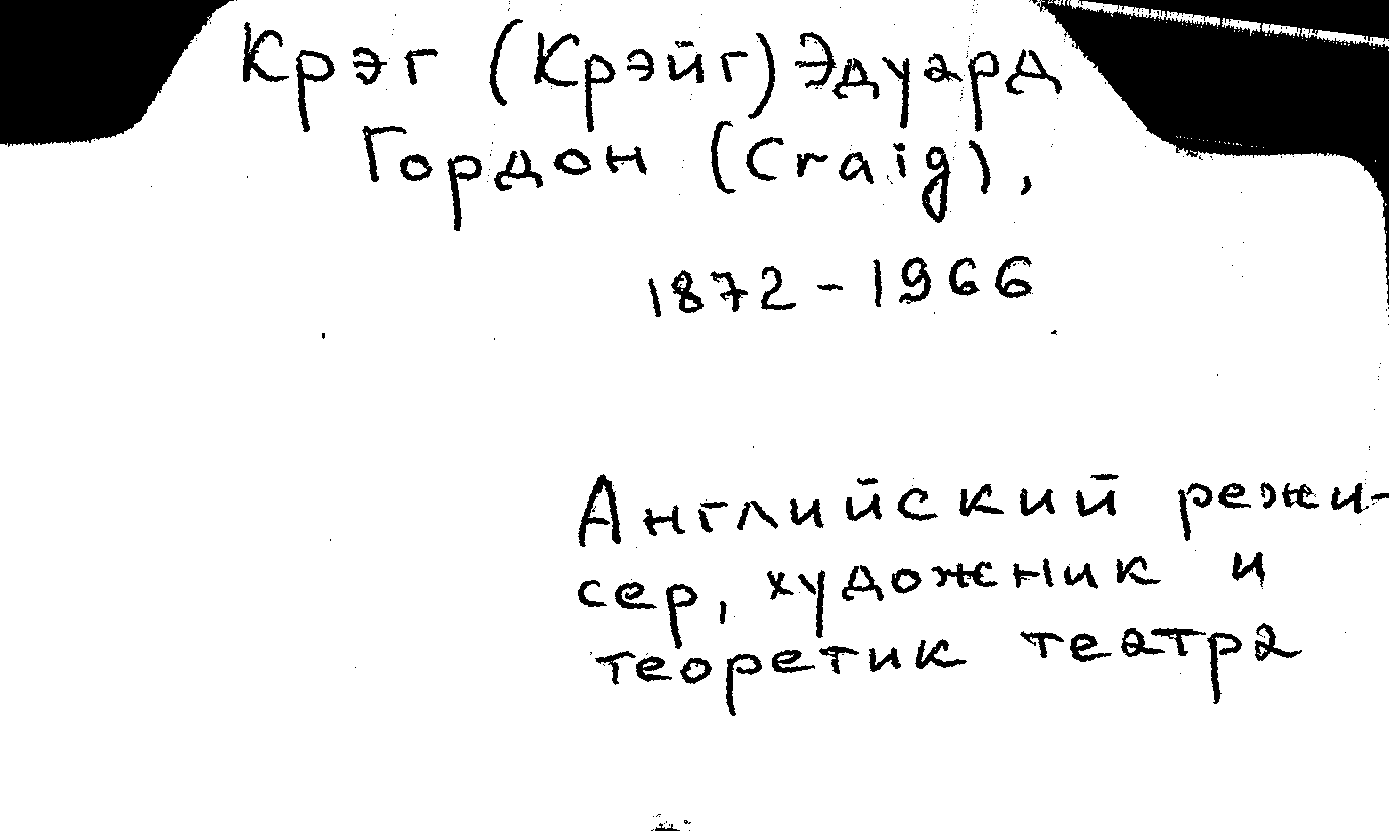 Крэг (Крэйг) Эдуард
Гордон (Craig),
1872-1966
Английский режи-
сер, художник и
теоретик театра